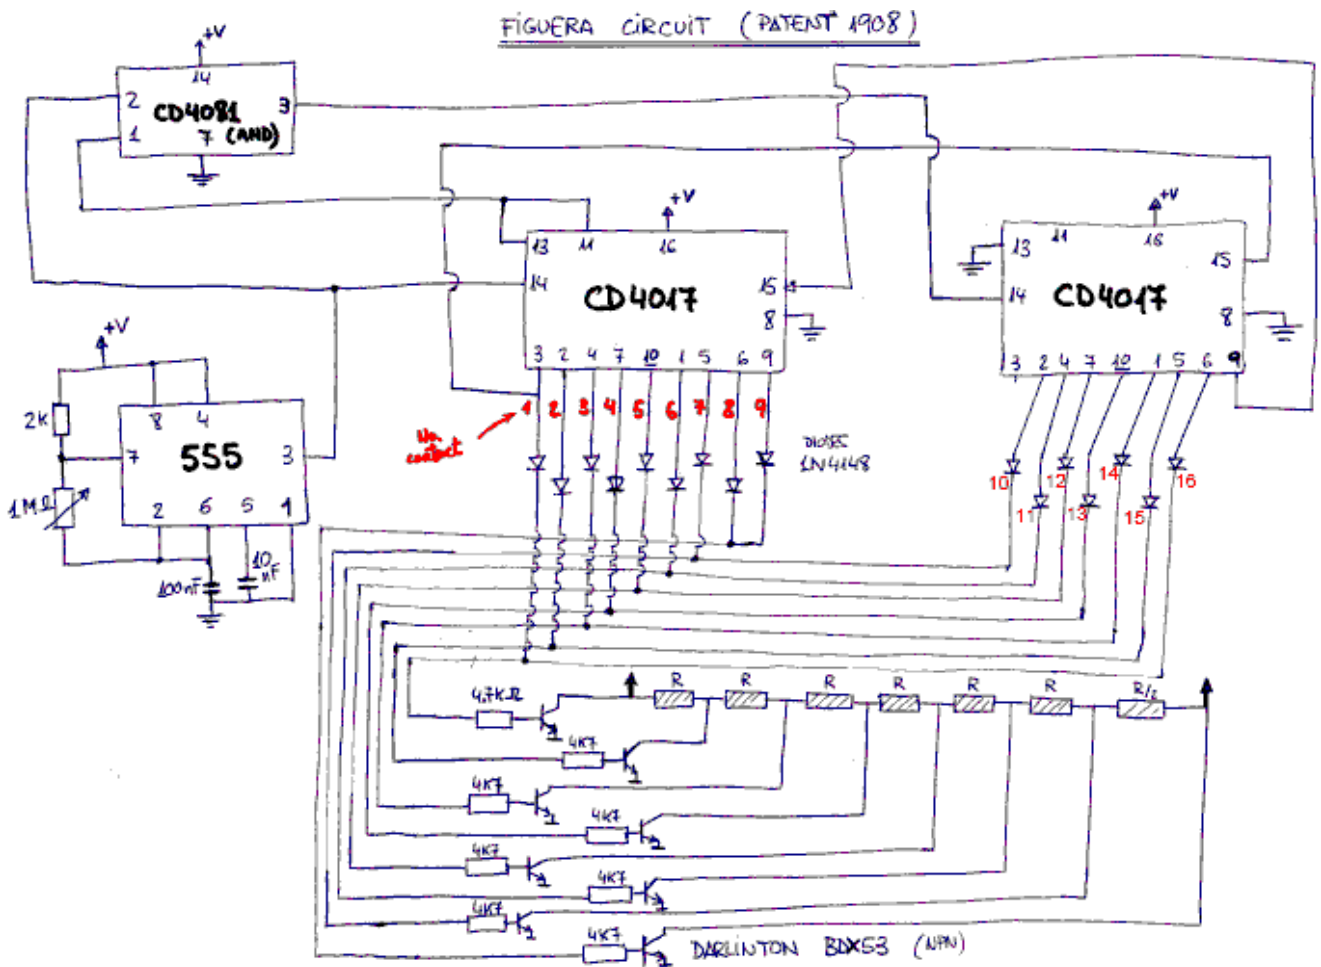 FIGUERA CIRCUIT (PATENT 1908)
+V
14
2
CD4081
3
1
7 (AND)
+V
13
11
16
14
CD4017
15
8
3 2 4 7 10 1 5 6 9
1 2 3 4 5 6 7 8 9
No contact
DIODES
1N4148
+V
13
11
16
15
14
CD4017
8
3 2 4 7 10 1 5 6 9
10 11 12 13 14 15 16
+V
2K
8
4
7
555
3
1MΩ
2
6
5
1
100nF
10nF
R R R R R R R/2
4.7KΩ
4K7
4K7
4K7
4K7
4K7
4K7
4K7
DARLINTON BDX53 (NPN)